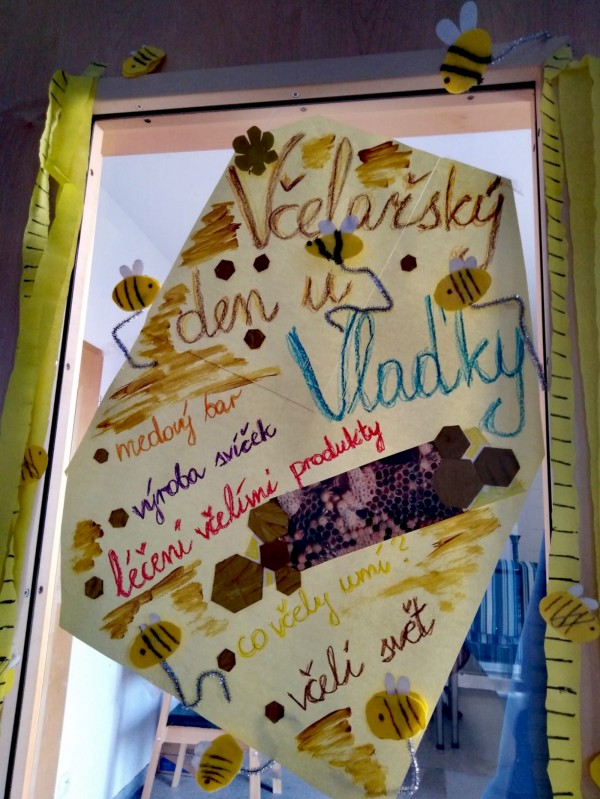 Včelařský
den u
Vlaďky
medový bar
výroba svíček
léčení včelími produkty
co včely umí?
včelí svět